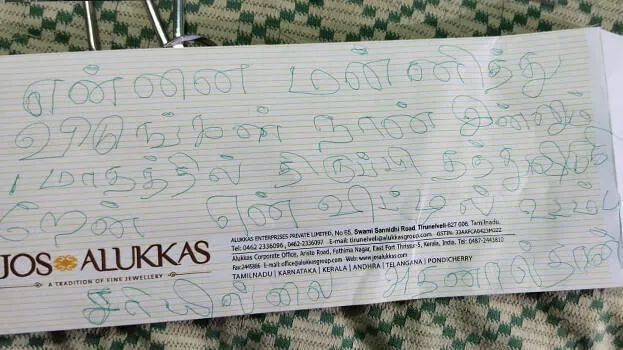 என்னை மன்னித்து
விடுங்கள் நான் இன்னும்
1 மாதத்தில் திருப்பி தந்துவிடு
கிறேன் என் வீட்டில் உடம்பு
ALUKKAS ENTERPRISES PRIVATE LIMITED, No 65, Swami Sannidhi Road, Tirunelveli-627 006, Tamilnadu.
Tel: 0462 2336096, 0462-2336097 E-mail: tirunelveli@alukkasgroup.com GSTIN: 33AAFCA0423H2ZZ
JOS ALUKKAS
Alukkas Corporate Office, Aristo Road, Fathima Nagar, East Fort Thrissur-5, Kerala, India. Tel: 0487-2443810
Fax:2445886 E-mail: office@alukkasgroup.com Web: www.josalukkas.com
A TRADITION OF FINE JEWELLERY
TAMILNADU | KARNATAKA | KERALA | ANDHRA | TELANGANA | PONDICHERRY
சரியில்லை